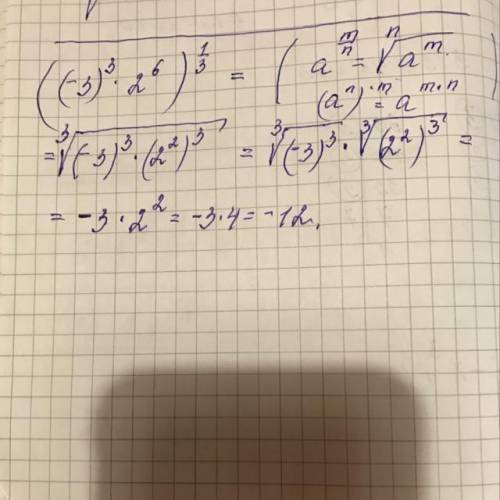 ((-3)³ · 2⁶)^(1/3) = (a^(m/n) = ⁿ√(a^m)
(aⁿ)^m = a^(m·n))
= ³√((-3)³ · (2²)³) = ³√((-3)³) · ³√((2²)³) =
= -3 · 2² = -3 · 4 = -12.